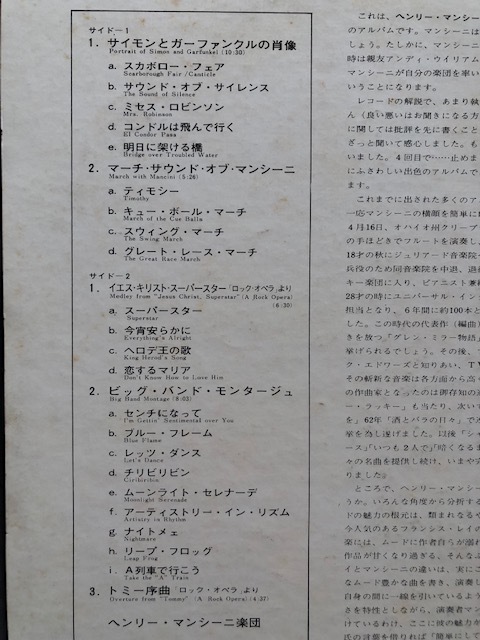 サイド—1
1. サイモンとガーファンクルの肖像
Portrait of Simon and Garfunkel (10:30)
a. スカボロー・フェア
Scarborough Fair / Canticle
b. サウンド・オブ・サイレンス
The Sound of Silence
c. ミセス・ロビンソン
Mrs. Robinson
d. コンドルは飛んで行く
El Condor Pasa
e. 明日に架ける橋
Bridge over Troubled Water
2. マーチ・サウンド・オブ・マンシーニ
March with Mancini (5:26)
a. ティモシー
Timothy
b. キュー・ボール・マーチ
March of the Cue Balls
c. スウィング・マーチ
The Swing March
d. グレート・レース・マーチ
The Great Race March
サイド—2
1. イエス・キリスト・スーパースター「ロック・オペラ」より
Medley from "Jesus Christ, Superstar" (A Rock Opera)
(6:30)
a. スーパースター
Superstar
b. 今宵安らかに
Everything's Alright
c. ヘロデ王の歌
King Herod's Song
d. 恋するマリア
I Don't Know How to Love Him
2. ビッグ・バンド・モンタージュ
Big Band Montage (8:03)
a. センチになって
I'm Gettin' Sentimental over You
b. ブルー・フレーム
Blue Flame
c. レッツ・ダンス
Let's Dance
d. チリビリビン
Ciribiribin
e. ムーンライト・セレナーデ
Moonlight Serenade
f. アーティストリー・イン・リズム
Artistry in Rhythm
g ナイトメェ
Nightmare
h. リープ・フロッグ
Leap Frog
i. A列車で行こう
Take the "A" Train
3. トミー序曲「ロック・オペラ」より
Overture from "Tommy" (A Rock Opera) (4:37)
ヘンリー・マンシーニ楽団
これは、ヘンリー・マンシー
のアルバムです。マンシーニは
しょう。たしかに、マンシーニ
時は親友アンディ・ウイリアム
マンシーニが自分の楽団を率い
いうことになります。
レコードの解説で、あまり執
ん（良い悪いはお聞きになる方
に関しては批評を先に書くこと
ざっと聞いて感心しました。も
いました。4回目で……止めま
にふさわしい出色のアルバムで
ます。
これまでに出された多くのア
一応マンシーニの横顔を簡単に
4月16日、オハイオ州クリーブ
の手ほどきでフルートを演奏し
18才の秋にジュリアード音楽院
兵役のため同音楽院を中退、退
キー楽団に入り、ピアニスト兼
28才の時にユニバーサル・イン
担当となり、6年間に約100本と
した。この時代の代表作（編曲
きを放つ「グレン・ミラー物語」
挙げられるでしょう。その後、
ク・エドワーズと知りあい、TV
その斬新な音楽は各方面から高く
の作曲家となったのは御存知の
ー・ラッキー」も当たり、次い
を」62年「酒とバラの日々」で
室を為し遂げました。以後「シャ
ース」「いつも2人で」「暗くなるま
々の名曲を提供し続け、いまや
りました。
ところで、ヘンリー・マンシー
うか。いろんな角度から分析する
ドの魅力の根元は、類まれなるや
今人気のあるフランシス・レイの
楽には、ムードに作者自らが溺れ
作品が甘くなり過ぎる、そんな
イとマンシーニの違いは、実に
なムード豊かな曲を書き、演奏し
自身の間に一線を引いているよう
さを特性としながら、演奏者マン
けているわけ、ここに彼の魅力が
氏の言葉を借りれば「簡単にして